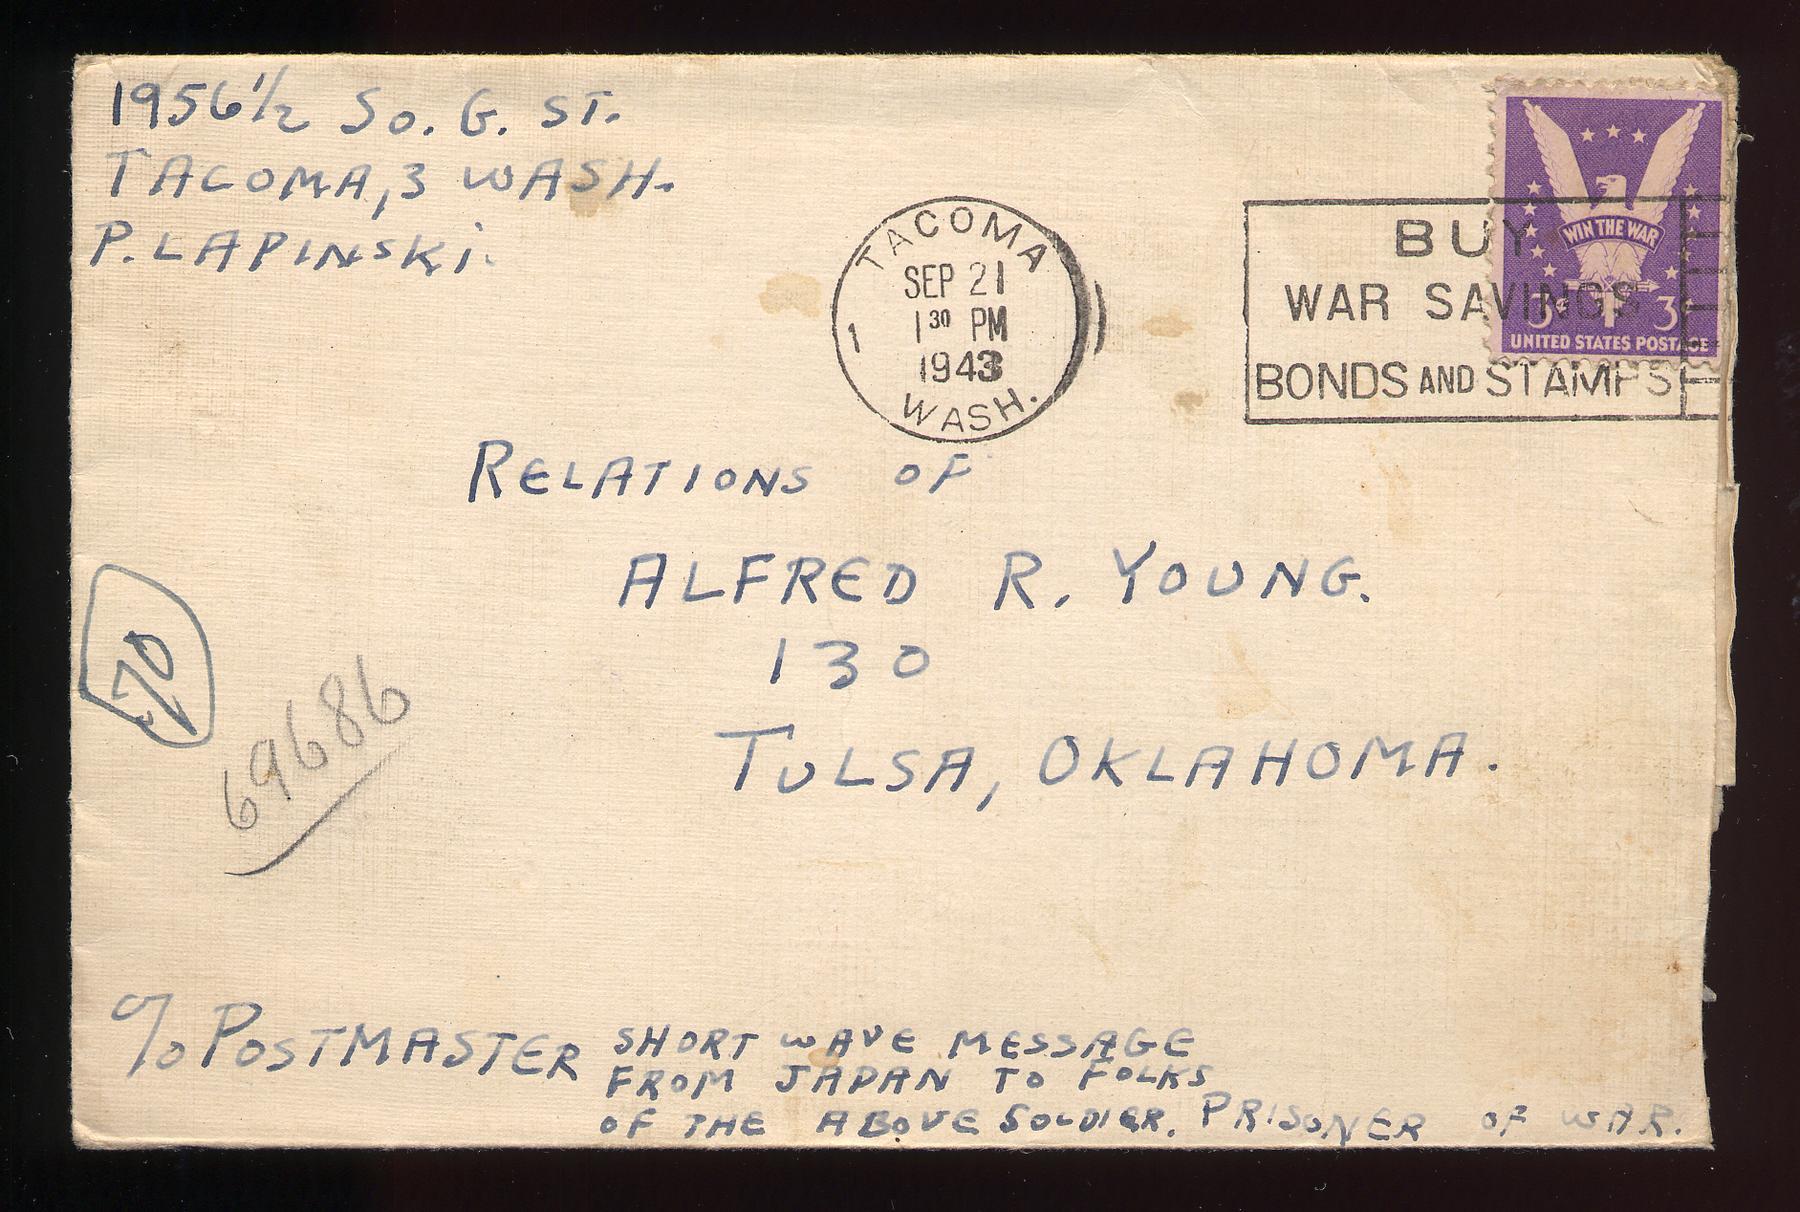 1956 1/2 So. G. ST.
TACOMA, 3 WASH.
P. LAPINSKi.
TACOMA
SEP 21
1 30 PM
1943
WASH.
1
BUY
WAR SAVINGS
BONDS AND STAMPS
WIN THE WAR
3¢ 3¢
UNITED STATES POSTAGE
RELATIONS OF
ALFRED R. YOUNG.
130
TULSA, OKLAHOMA.
69686
c/o POSTMASTER
SHORT WAVE MESSAGE
FROM JAPAN TO FOLKS
OF THE ABOVE SOLDIER. PRISONER OF WAR.